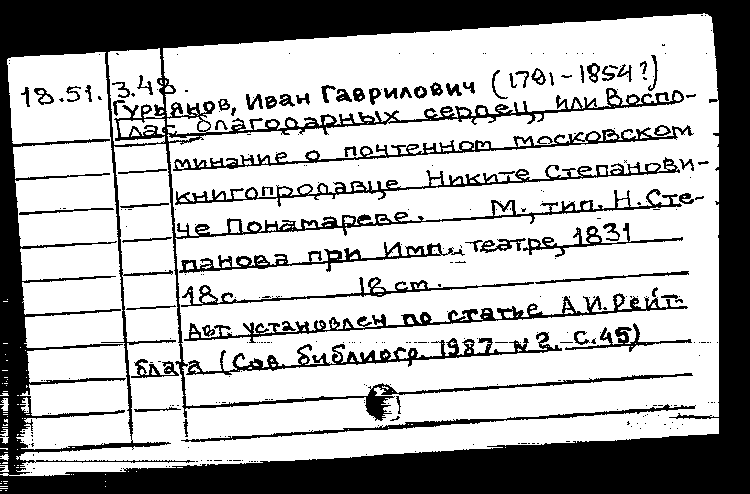 18.51.3.48.
Гурьянов, Иван Гаврилович (1791-1854?)
Глас благодарных сердец, или Воспо-
минание о почтенном московском
книгопродавце Никите Степанови-
че Понамареве. М., тип. Н. Сте-
панова при Имп. театре, 1831
18 с. 18 см.
Авт. установлен по статье А.И. Рейт-
блата (Сов. библиогр. 1987. N 2. С. 45)